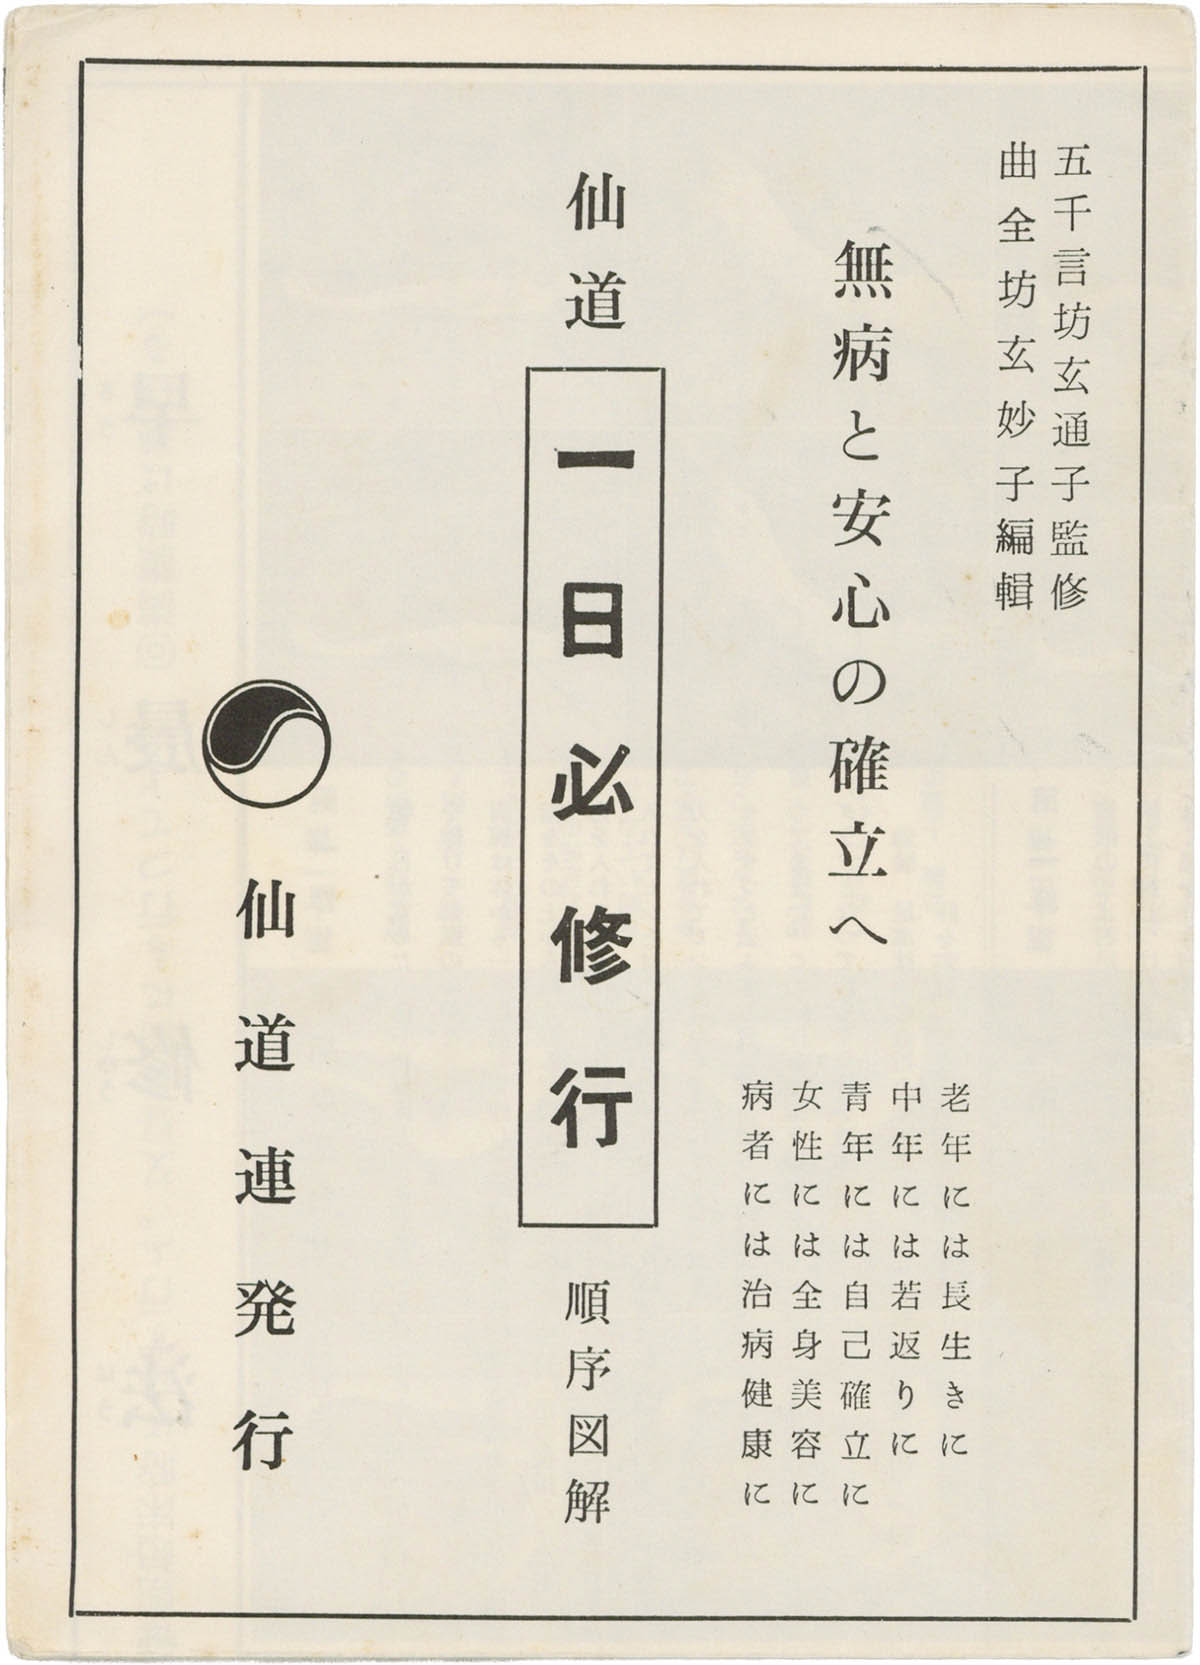 五千言坊玄通子監修
曲全坊玄妙子編輯
無病と安心の確立へ
老年には長生きに
中年には若返りに
青年には自己確立に
女性には全身美容に
病者には治病健康に
仙道
一日必修行
順序図解
仙道連発行